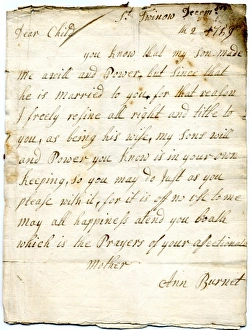 St Twinow Decembr
the 2 1759
Dear Child
you know that my son made
me a will and Power, but since that
he is married to you, for that reason
I freely resine all right and title to
you, as being his wife, my sons will
and Power you know is in your own
keeping, so you may do Just as you
please with it, for it is off no use to me
may all happiness atend you boath
which is the Prayers of your afectionate
Mother
Ann Burnet